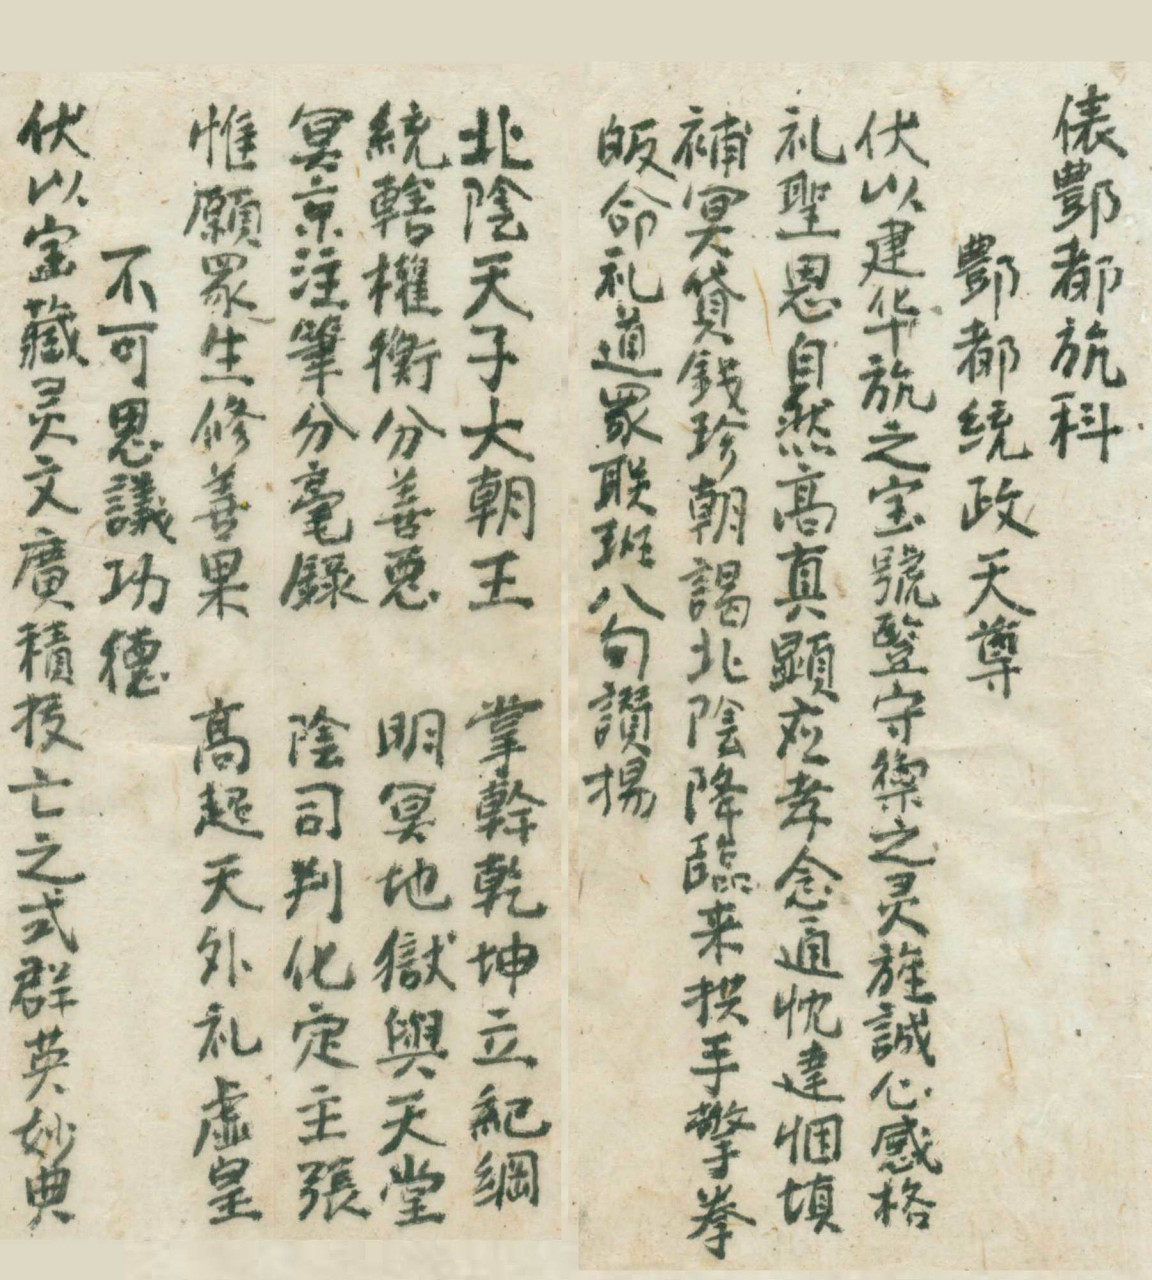 俵酆都旂科
酆都統政天尊
伏以建华旂之宝號豎守禦之灵旌誠心感格
礼聖恩自然高真顯应孝念通忱達悃填
補冥貸錢珍朝謁北陰降臨来拱手擎拳
皈命礼道眾联班八句讚揚
北陰天子大朝王 掌幹乾坤立紀綱
統轄權衡分善惡 明冥地獄與天堂
冥京注筆分毫錄 陰司判化定主張
惟願眾生修善果 高超天外礼虛皇
不可思議功德
伏以宝藏灵文廣積拔亡之式群英妙典